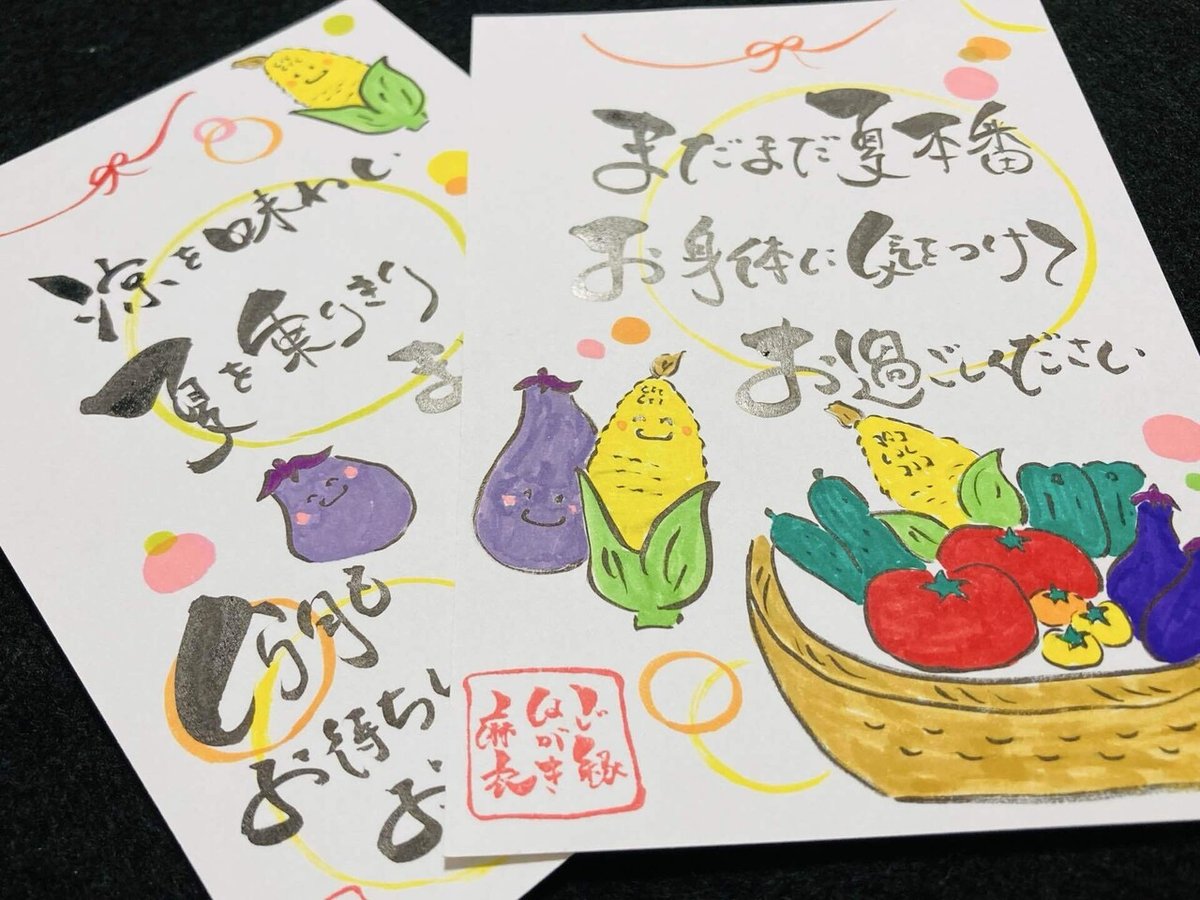 涼を味わい
夏を乗りきり
ま
月も
お待ちし
お
まだまだ夏本番
お身体に気をつけて
お過ごしください
ご縁
はがき
麻衣